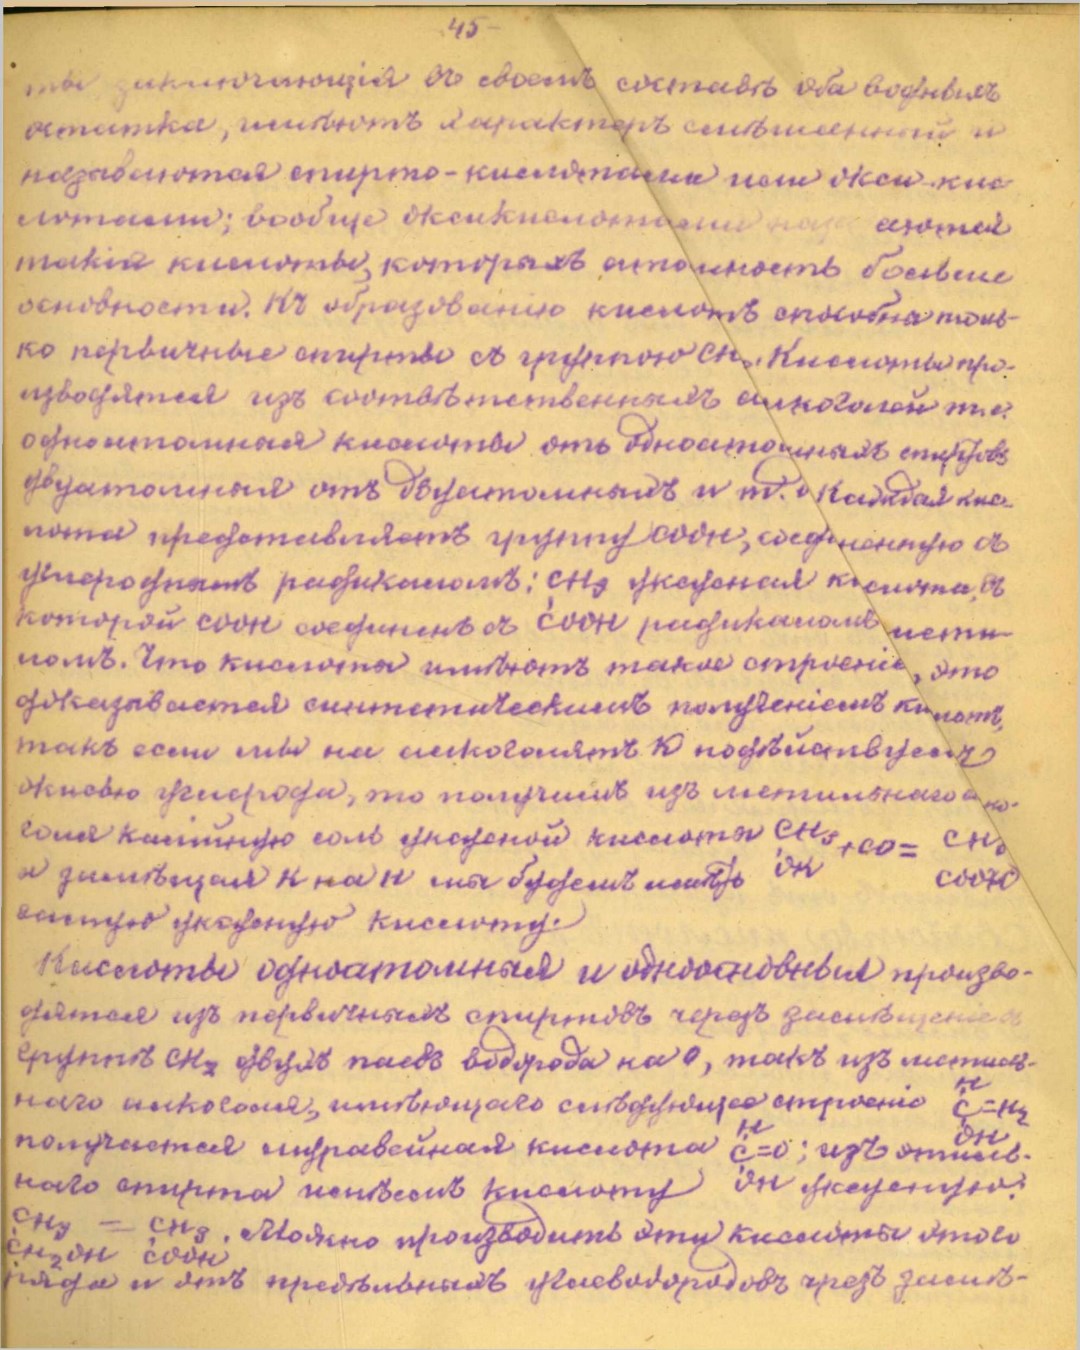 45-
ты заключающія въ своемъ составѣ оба водныхъ
остатка, имѣютъ характеръ смѣшанный и
называются спирто-кислотами или окси-кис-
лотами; вообще оксикислотами называются
такія кислоты, которыхъ атомность больше
основности. Къ образованію кислотъ способны толь-
ко первичные спирты съ группою CH₂. Кислоты про-
изводятся изъ соотвѣтственныхъ алкоголей т.е.
одноатомныя кислоты отъ одноатомныхъ спиртовъ
двуатомныя отъ двуатомныхъ и т.д. Каждая кис-
лота представляетъ группу COOH, соединенную съ
углероднымъ радикаломъ: CH₃ уксусная кислота, въ
которой COOH соединенъ съ COOH радикаломъ мети-
ломъ. Что кислоты имѣютъ такое строеніе, это
доказывается синтетическимъ полученіемъ кислотъ,
такъ если мы на алкоголятъ K подѣйствуемъ
окисью углерода, то получимъ изъ метильнаго алко-
голя калійную соль уксусной кислоты CH₃ + CO = CH₃
и замѣщая K на H мы будемъ имѣть OK COOK
самую уксусную кислоту.
Кислоты одноатомныя и одноосновныя произво-
дятся изъ первичныхъ спиртовъ черезъ замѣщеніе въ
группѣ CH₂ двухъ паевъ водорода на O, такъ изъ метиль-
наго алкоголя, имѣющаго слѣдующее строеніе H C=H₂ OH
получается муравейная кислота H C=O OH; изъ этиль-
наго спирта имѣемъ кислоту уксусную:
CH₃ = CH₃. Можно производить эти кислоты этого
CH₂OH COOH
ряда и отъ предѣльныхъ углеводородовъ чрезъ замѣ-